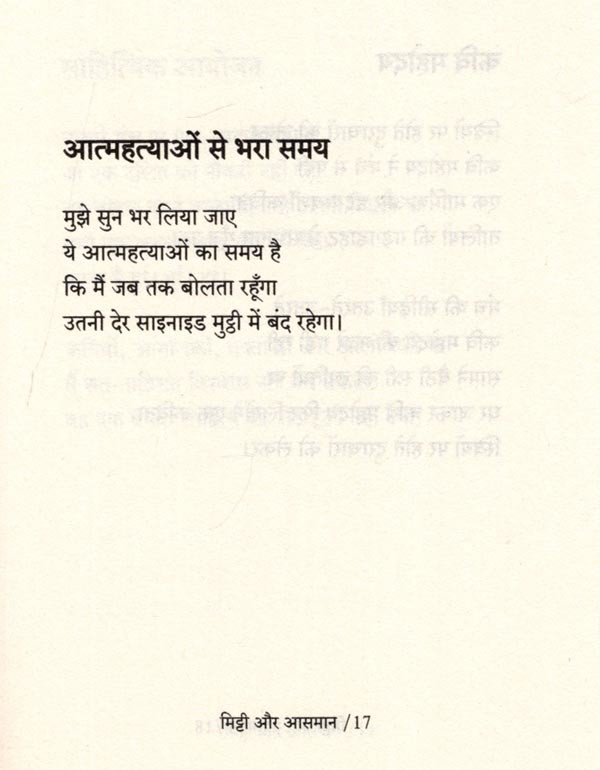 आत्महत्याओं से भरा समय
मुझे सुन भर लिया जाए
ये आत्महत्याओं का समय है
कि मैं जब तक बोलता रहूँगा
उतनी देर साइनाइड मुट्ठी में बंद रहेगा।
मिट्टी और आसमान /17